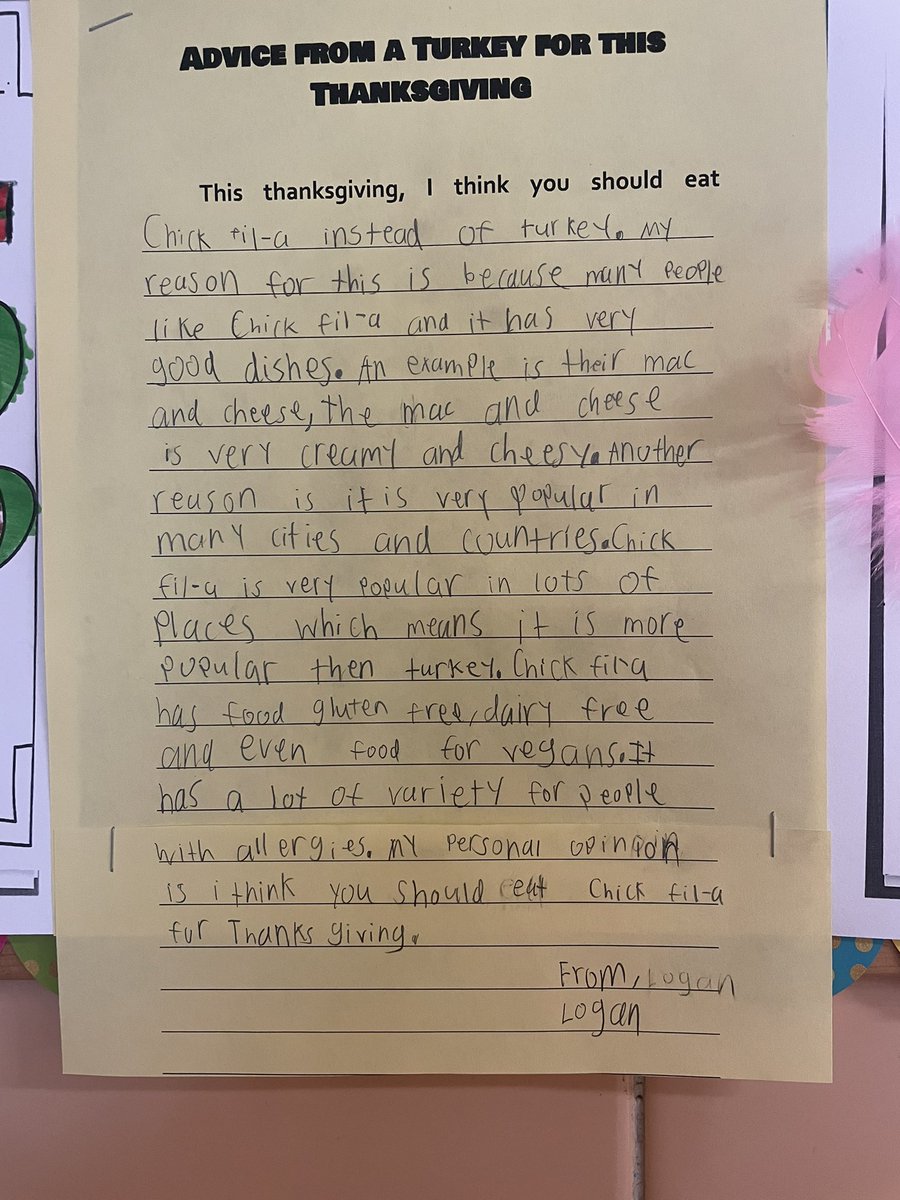 ADVICE FROM A TURKEY FOR THIS
THANKSGIVING
This thanksgiving, I think you should eat
Chick fil-a instead of turkey. My
reason for this is because many people
like Chick fil-a and it has very
good dishes. An example is their mac
and cheese, The mac and cheese
is very creamy and cheesy. Another
reason is it is very popular in
many cities and countries. Chick
fil-a is very popular in lots of
places which means it is more
popular then turkey. Chick fil-a
has food gluten free, dairy free
and even food for vegans. It
has a lot of variety for people
with allergies. My personal opinpion
is i think you should eat Chick fil-a
for Thanks giving.
From, Logan
Logan